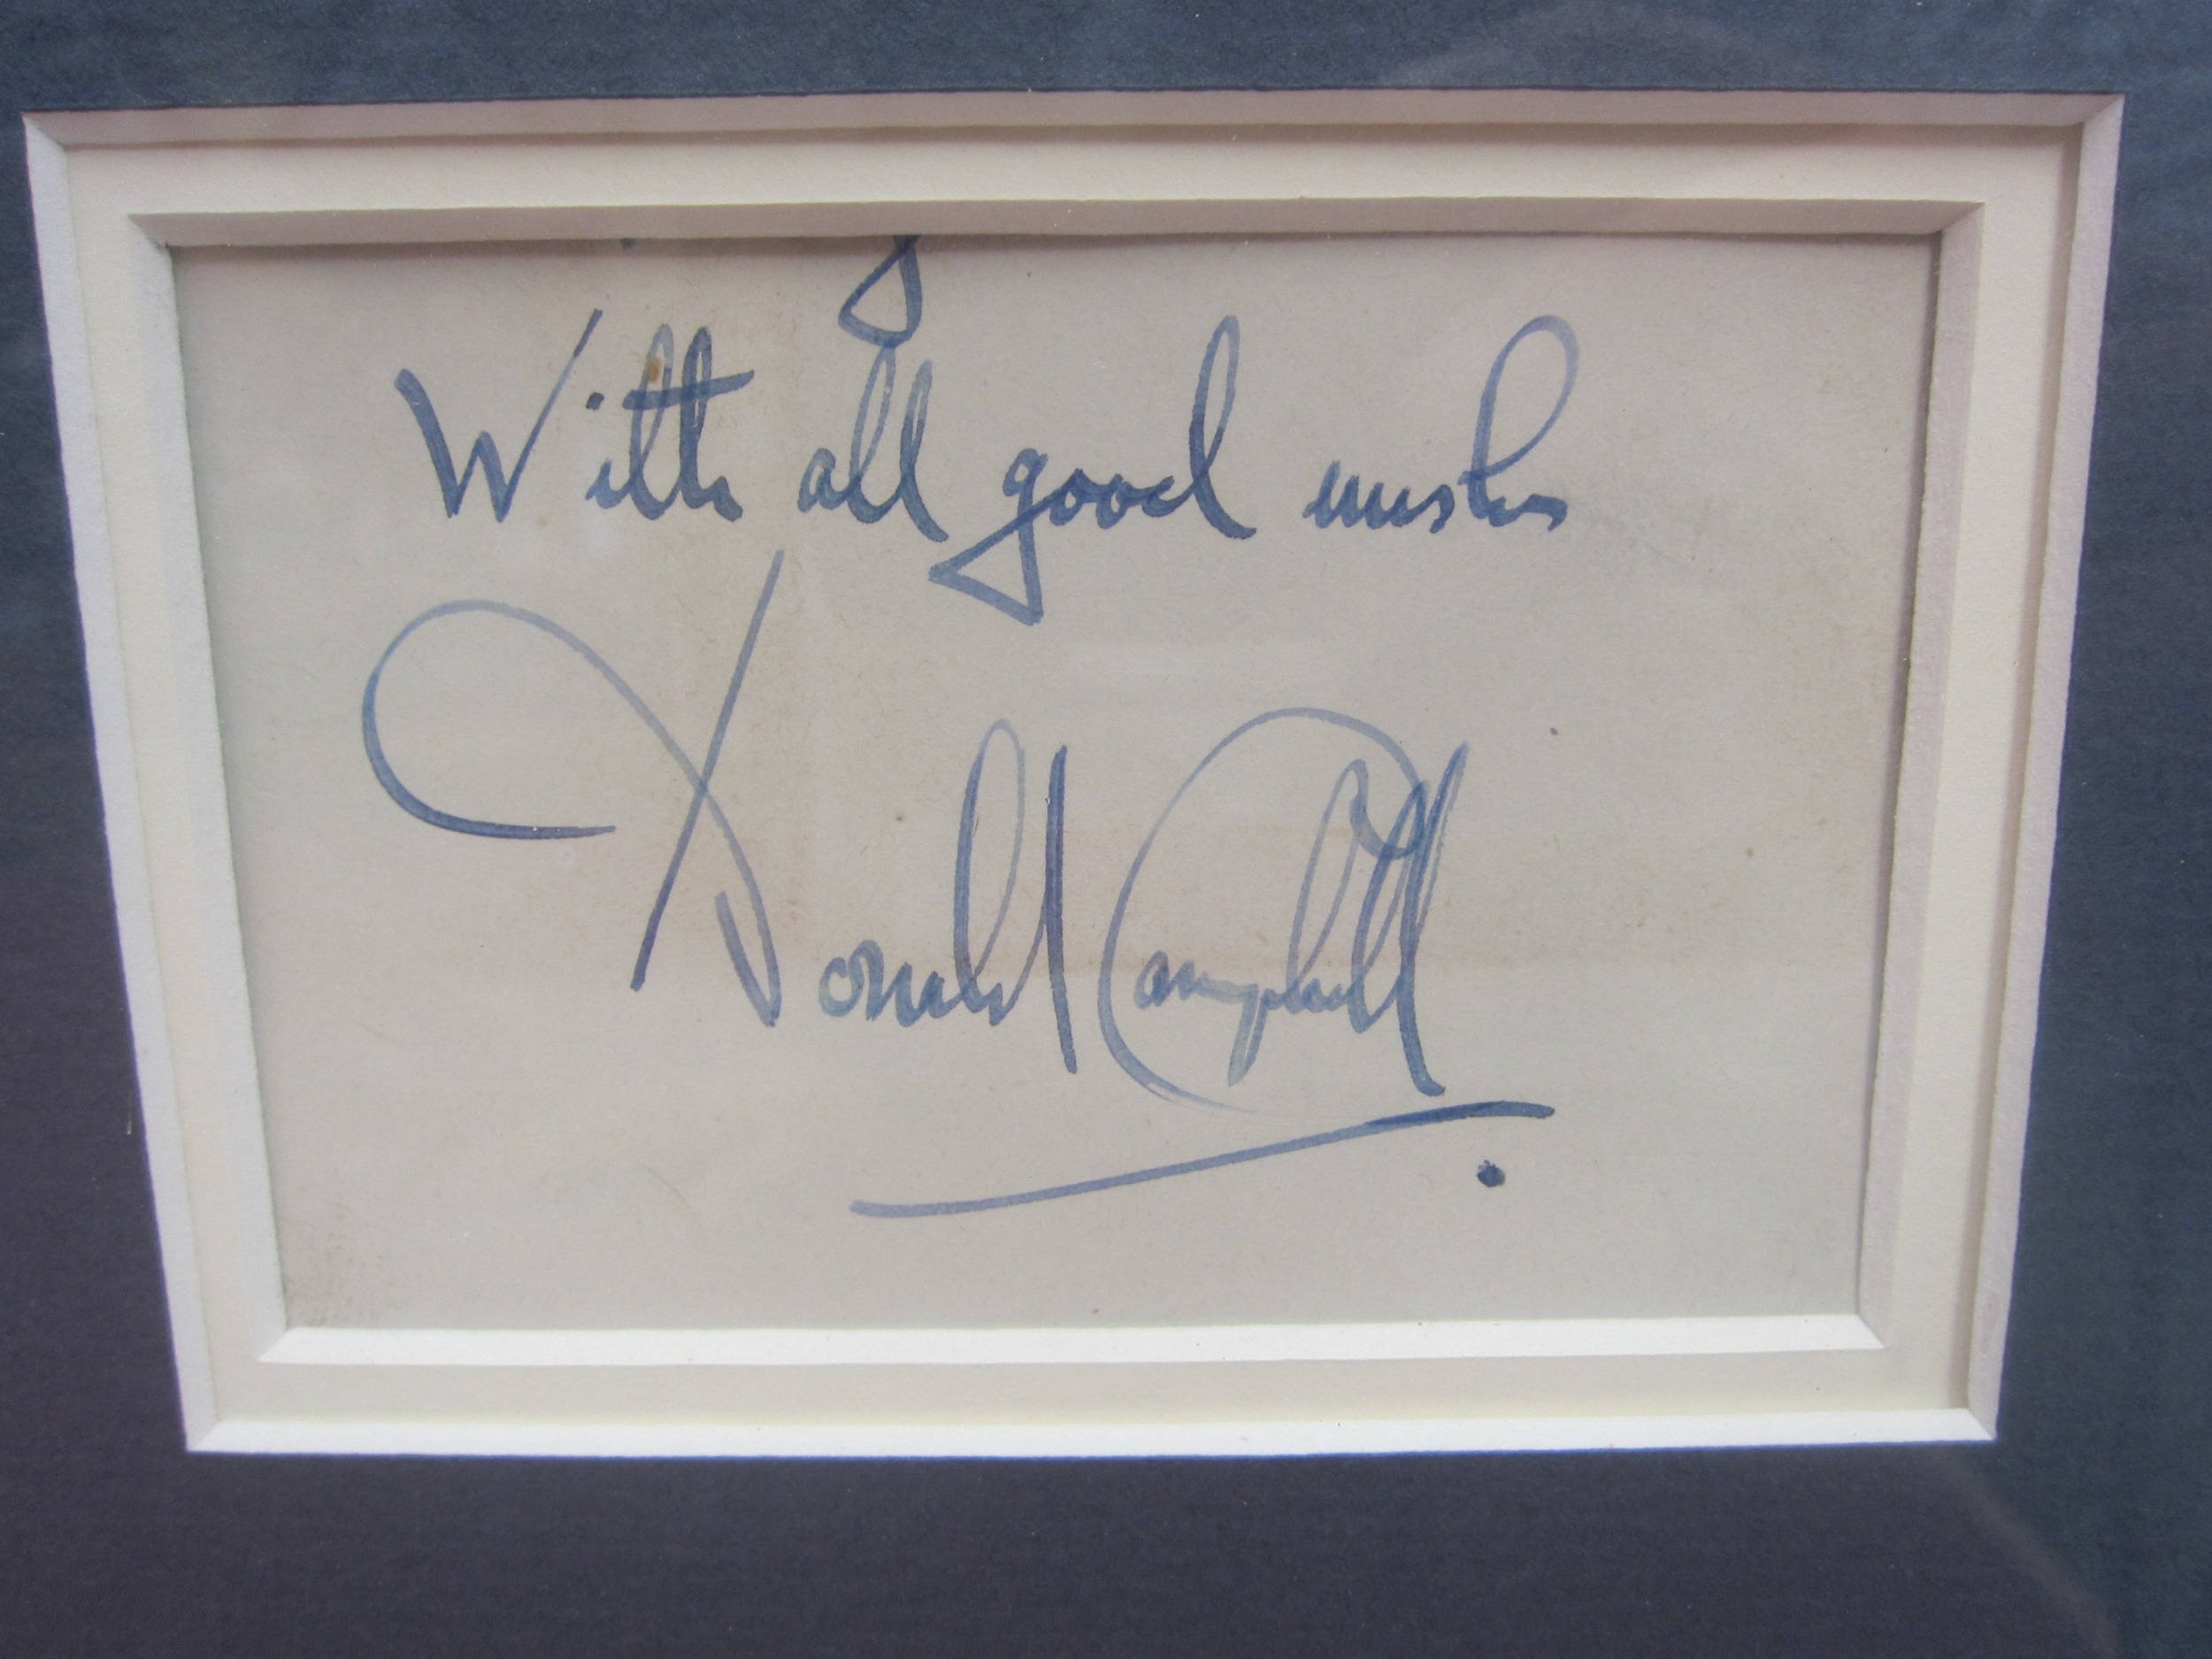 With all good wishes
Donald Campbell